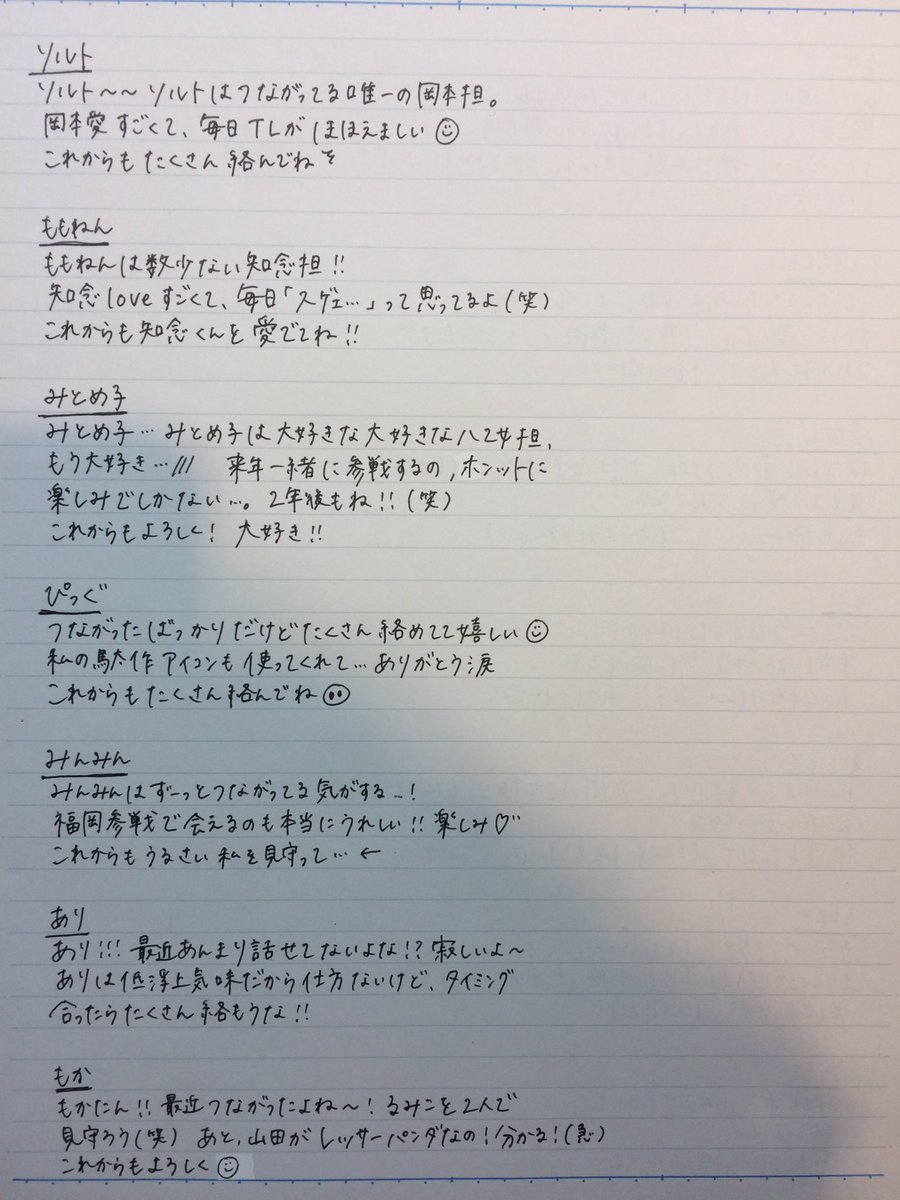 ソルト
ソルト〜〜ソルトはつながってる唯一の岡本担。
岡本愛すごくて、毎日TLがほほえましい☺
これからもたくさん絡んでね
ももねん
ももねんは数少ない知念担!!
知念loveすごくて、毎日「スゲェ…」って思ってるよ(笑)
これからも知念くんを愛でてね!!
みとめ子
みとめ子…みとめ子は大好きな大好きな八乙女担、
もう大好き…/// 来年一緒に参戦するの,ホンットに
楽しみでしかない…。2年後もね!!(笑)
これからもよろしく! 大好き!!
ぴっぐ
つながったばっかりだけどたくさん絡めてて嬉しい☺
私の駄作アイコンも使ってくれて…ありがとう涙
これからもたくさん絡んでね
みんみん
みんみんはずーっとつながってる気がする…!
福岡参戦で会えるのも本当にうれしい!!楽しみ♡
これからもうるさい私を見守って…←
あり
あり!!!最近あんまり話せてないよな!?寂しいよ〜
ありは低浮上気味だから仕方ないけど、タイミング
合ったらたくさん絡もうな!!
もか
もかたん!!最近つながったよね〜!るみこを2人で
見守ろう(笑) あと,山田がレッサーパンダなの!分かる!(急)
これからもよろしく☺